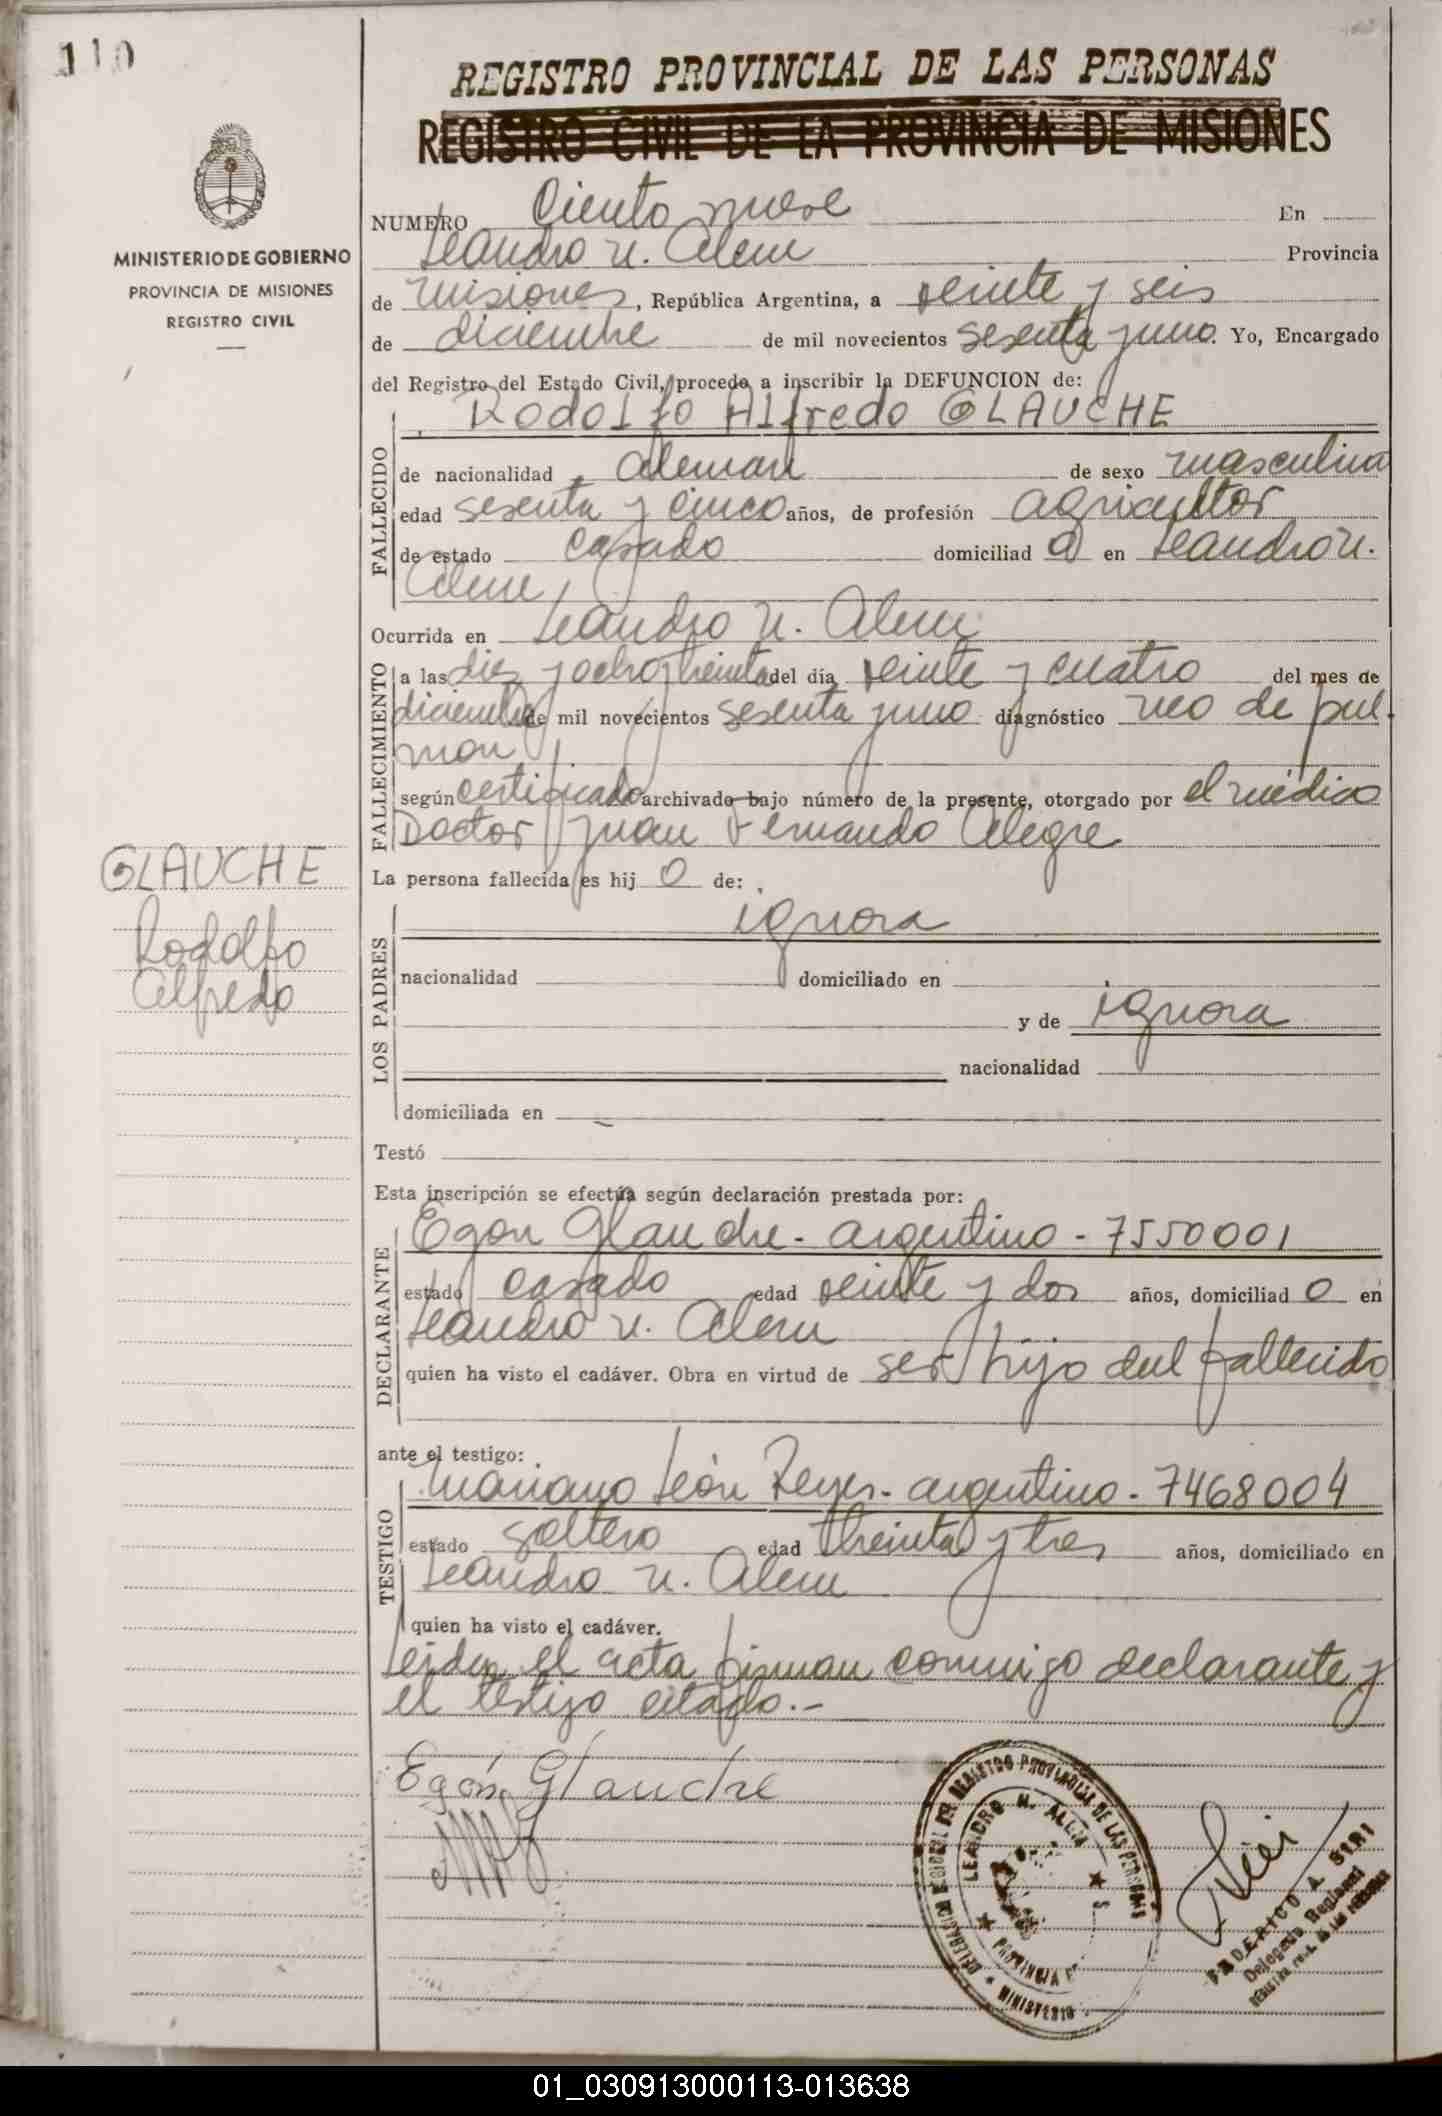 110
REGISTRO PROVINCIAL DE LAS PERSONAS
REGISTRO CIVIL DE LA PROVINCIA DE MISIONES
MINISTERIO DE GOBIERNO
PROVINCIA DE MISIONES
REGISTRO CIVIL
NUMERO Ciento nueve En
Leandro N. Alem Provincia
de Misiones, República Argentina, a veinte y seis
de diciembre de mil novecientos sesenta y uno. Yo, Encargado
del Registro del Estado Civil, procedo a inscribir la DEFUNCION de:
Rodolfo Alfredo GLAUCHE
FALLECIDO
de nacionalidad aleman de sexo masculino
edad sesenta y cinco años, de profesión agricultor
de estado casado domiciliad o en Leandro N.
Alem
Ocurrida en Leandro N. Alem
FALLECIMIENTO
a las diez y ocho y treinta del día veinte y cuatro del mes de
diciembre de mil novecientos sesenta y uno diagnóstico neo de pul-
mon
según certificado archivado bajo número de la presente, otorgado por el médico
Doctor Juan Fernando Alegre
GLAUCHE
Rodolfo
Alfredo
La persona fallecida es hij o de:
LOS PADRES
ignora
nacionalidad domiciliado en
y de ignora
nacionalidad
domiciliada en
Testó
Esta inscripción se efectúa según declaración prestada por:
DECLARANTE
Egon Glauche - argentino - 7550001
estado casado edad veinte y dos años, domiciliad o en
Leandro N. Alem
quien ha visto el cadáver. Obra en virtud de ser hijo del fallecido
ante el testigo:
TESTIGO
Mariano León Reyes - argentino - 7468004
estado soltero edad treinta y tres años, domiciliado en
Leandro N. Alem
quien ha visto el cadáver.
Leida el acta firman conmigo declarante y
el testigo citado.-
Egón Glauche
REGISTRO PROVINCIAL DE LAS PERSONAS
LEANDRO N. ALEM
PROVINCIA
MINISTERIO
FEDERICO A. SIRI
Delegado Regional
01_030913000113-013638